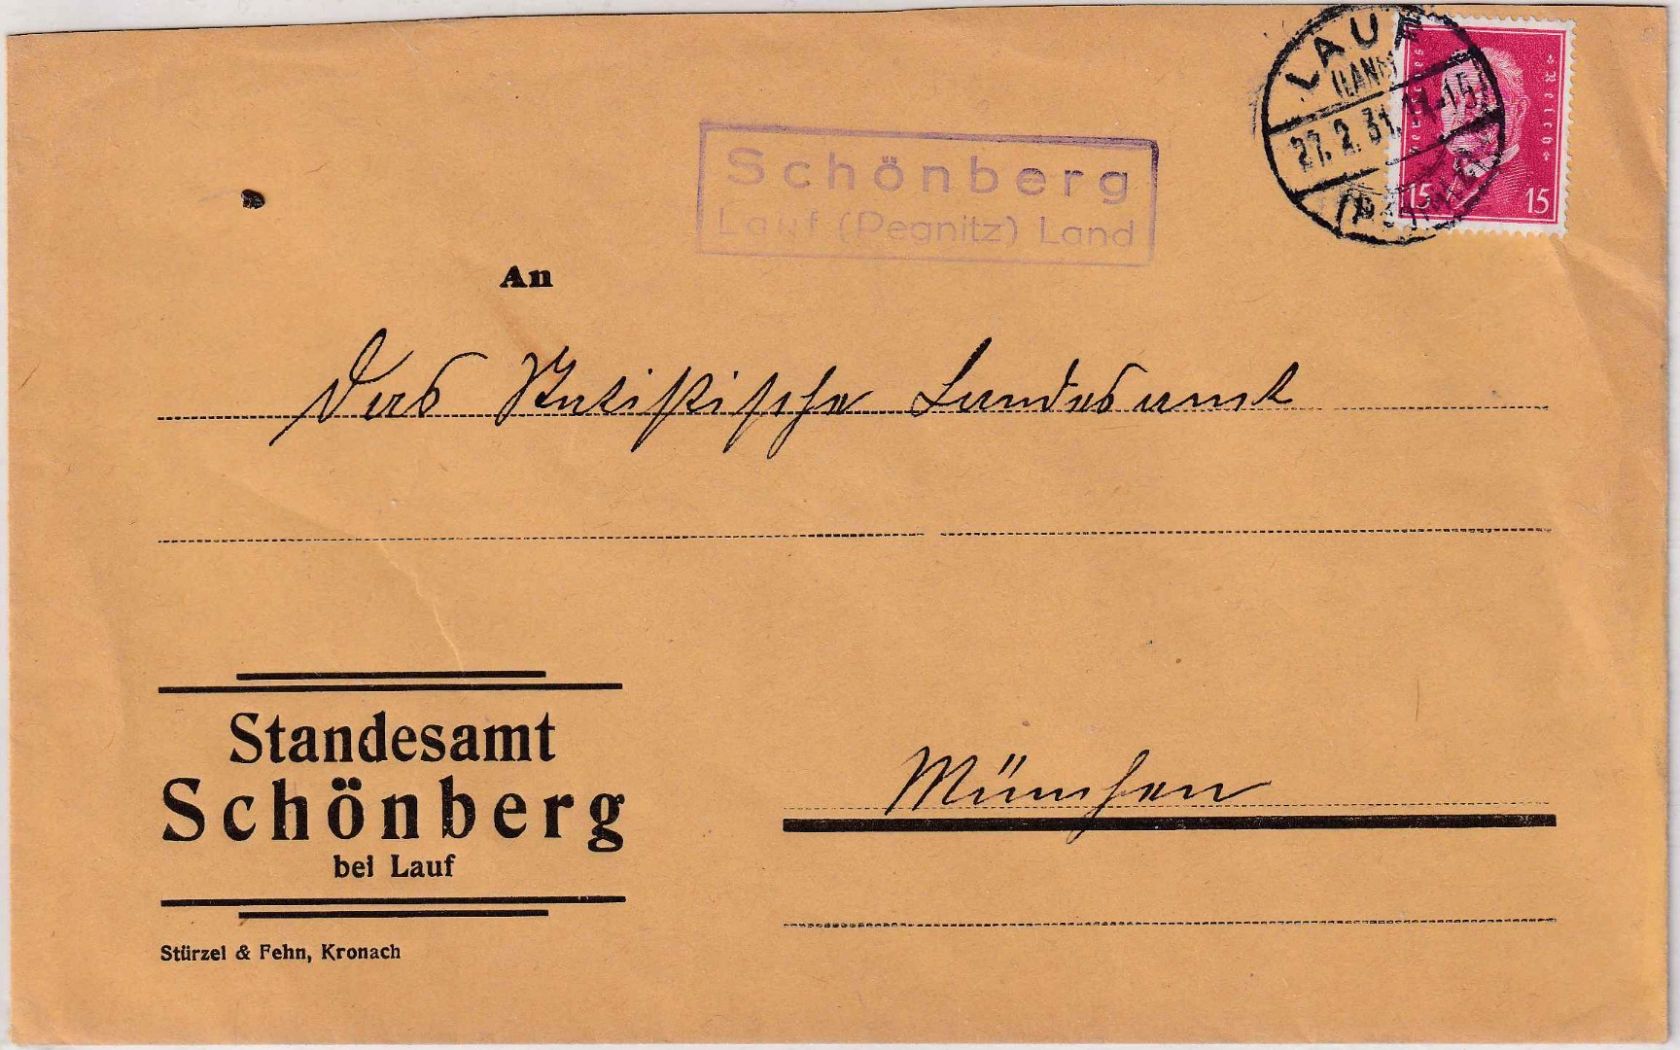 LAUF
(LAND)
27.2.31.11-15
(PEGNITZ)
Deutsches Reich
15 15
Schönberg
Lauf (Pegnitz) Land
An
das Statistische Landesamt
München
Standesamt
Schönberg
bei Lauf
Stürzel & Fehn, Kronach